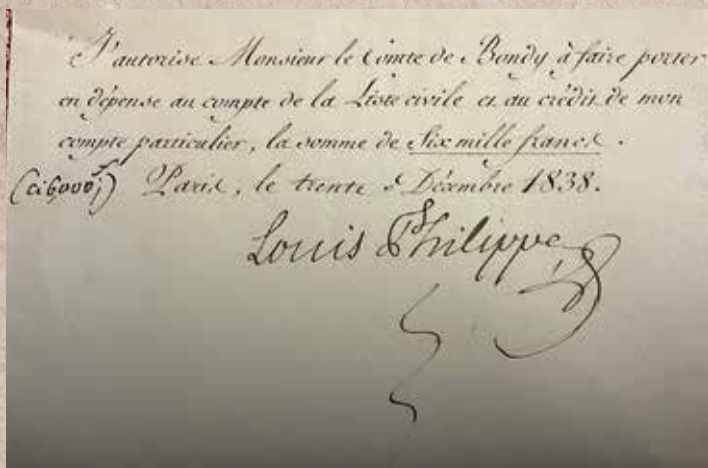 J'autorise Monsieur le Comte de Bondy à faire porter
en dépense au compte de la Liste civile et au crédit de mon
compte particulier, la somme de Six mille francs.
(ci 6,000f) Paris, le trente Décembre 1838.
Louis Philippe